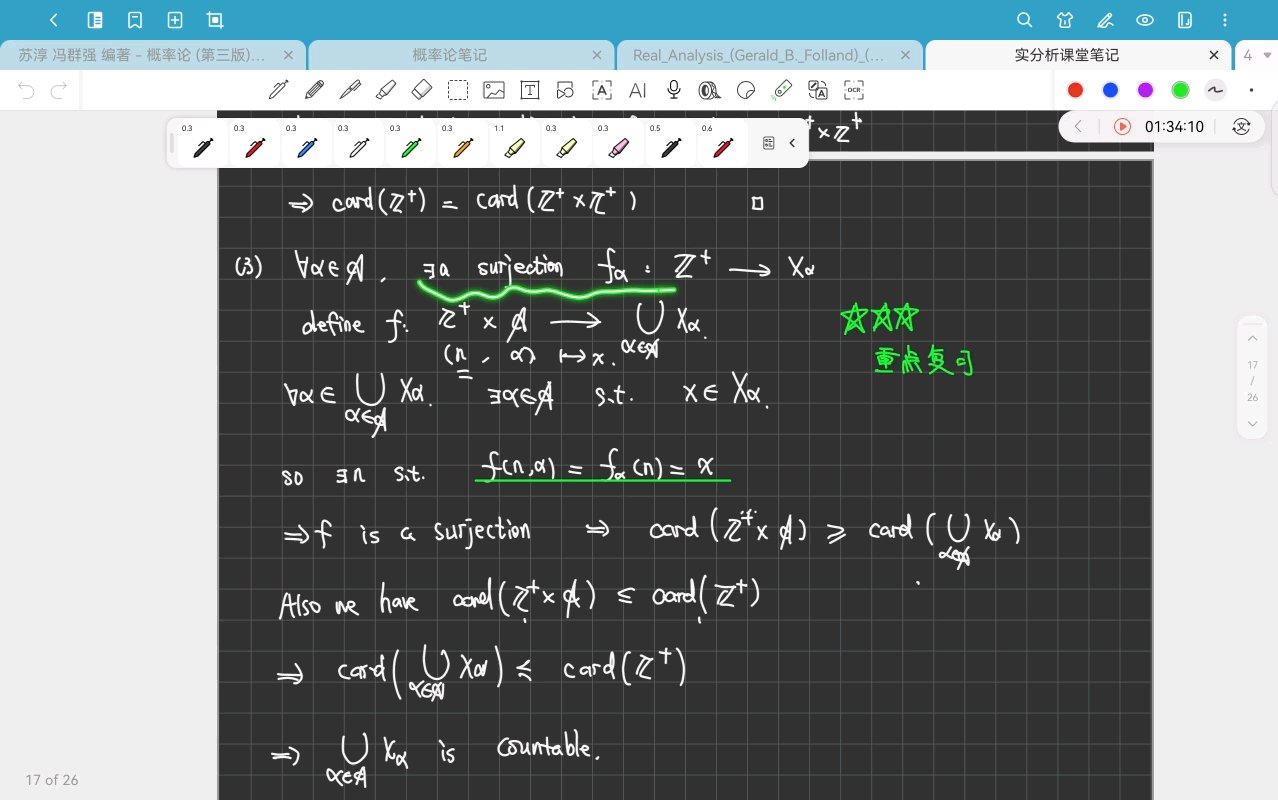 苏淳 冯群强 编著 - 概率论 (第三版)...
概率论笔记
Real_Analysis_(Gerald_B._Folland)_(...
实分析课堂笔记
4
AI
OCR
0.3 0.3 0.3 0.3 0.3 0.3 1.1 0.3 0.3 0.5 0.6
01:34:10
+ × ℤ⁺
⇒ card(ℤ⁺) = card(ℤ⁺ × ℤ⁺) □
(3) ∀α∈A, ∃a surjection fα : ℤ⁺ ⟶ Xα
define f: ℤ⁺ × A ⟶ ⋃α∈A Xα.
(n, α) ↦ x.
∀α∈ ⋃α∈A Xα. ∃α∈A s.t. x∈Xα.
so ∃n s.t. f(n,α) = fα(n) = x
⇒ f is a surjection ⇒ card(ℤ⁺ × A) ≥ card(⋃α∈A Xα)
Also we have card(ℤ⁺ × A) ≤ card(ℤ⁺)
⇒ card(⋃α∈A Xα) ≤ card(ℤ⁺)
⇒ ⋃α∈A Xα is countable.
☆☆☆
重点复习
17
/
26
17 of 26